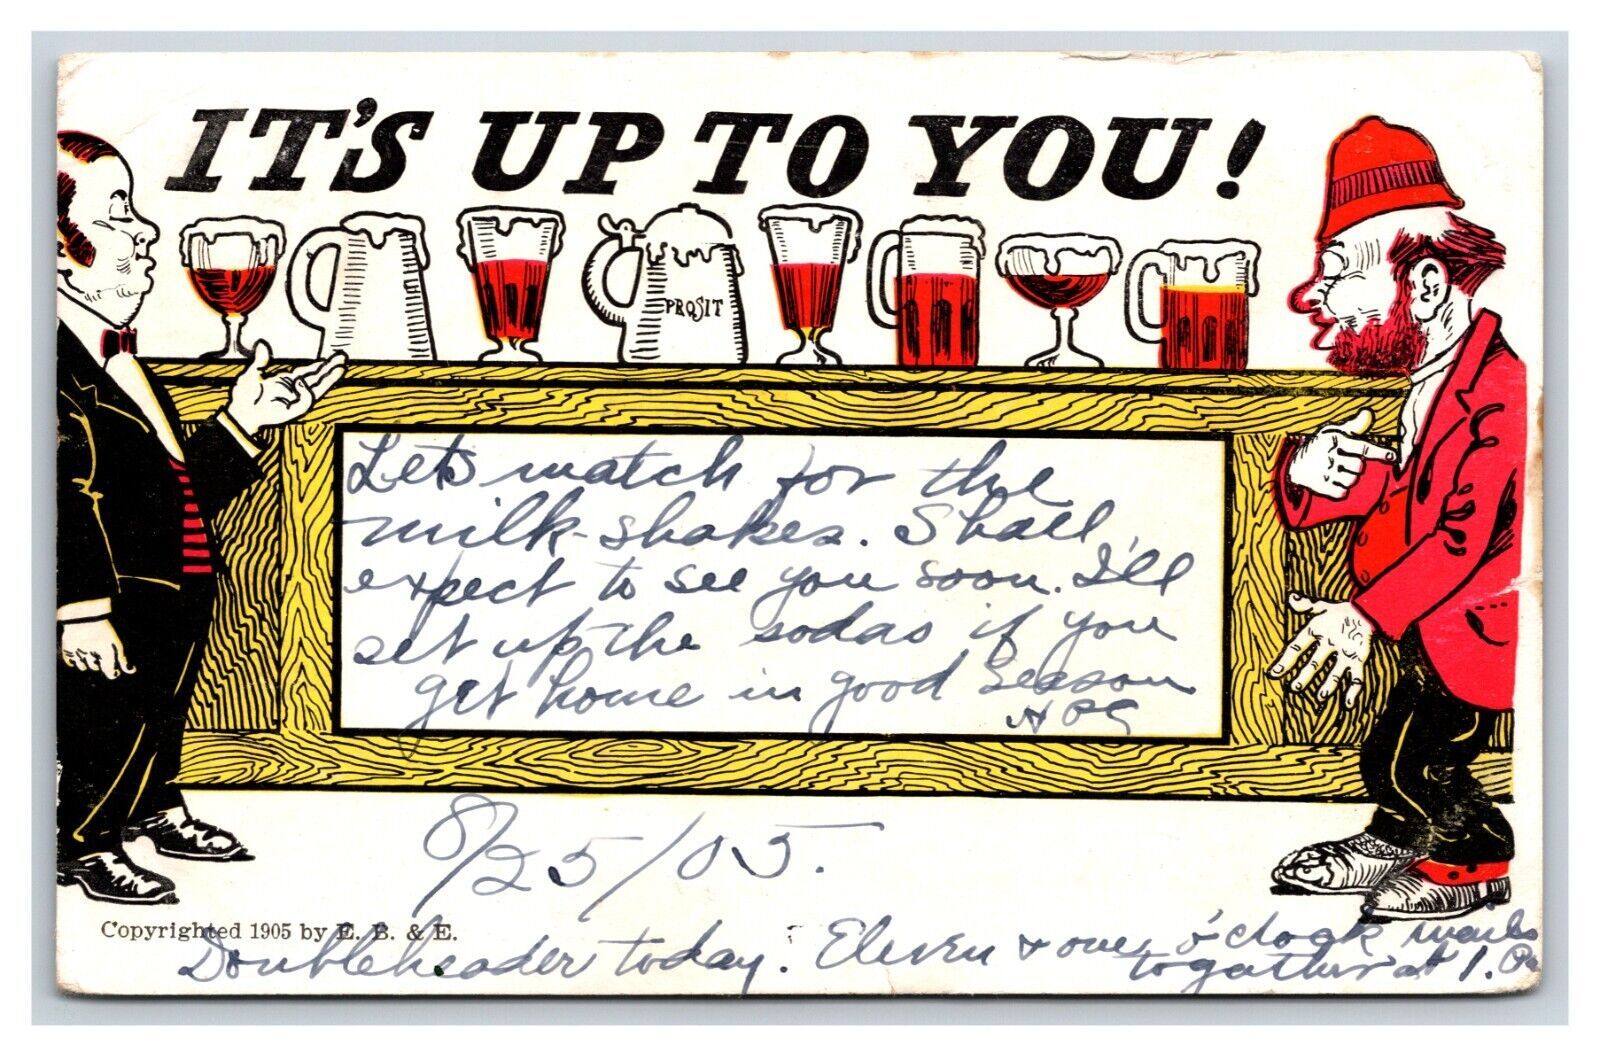 IT'S UP TO YOU!
PROSIT
Let's match for the
milk-shakes. Shall
expect to see you soon. I'll
set up the sodas if you
get home in good season
8/25/05.
Copyrighted 1905 by E. B. & E.
Doubleheader today. Eleven & one o'clock mails
together at 1.